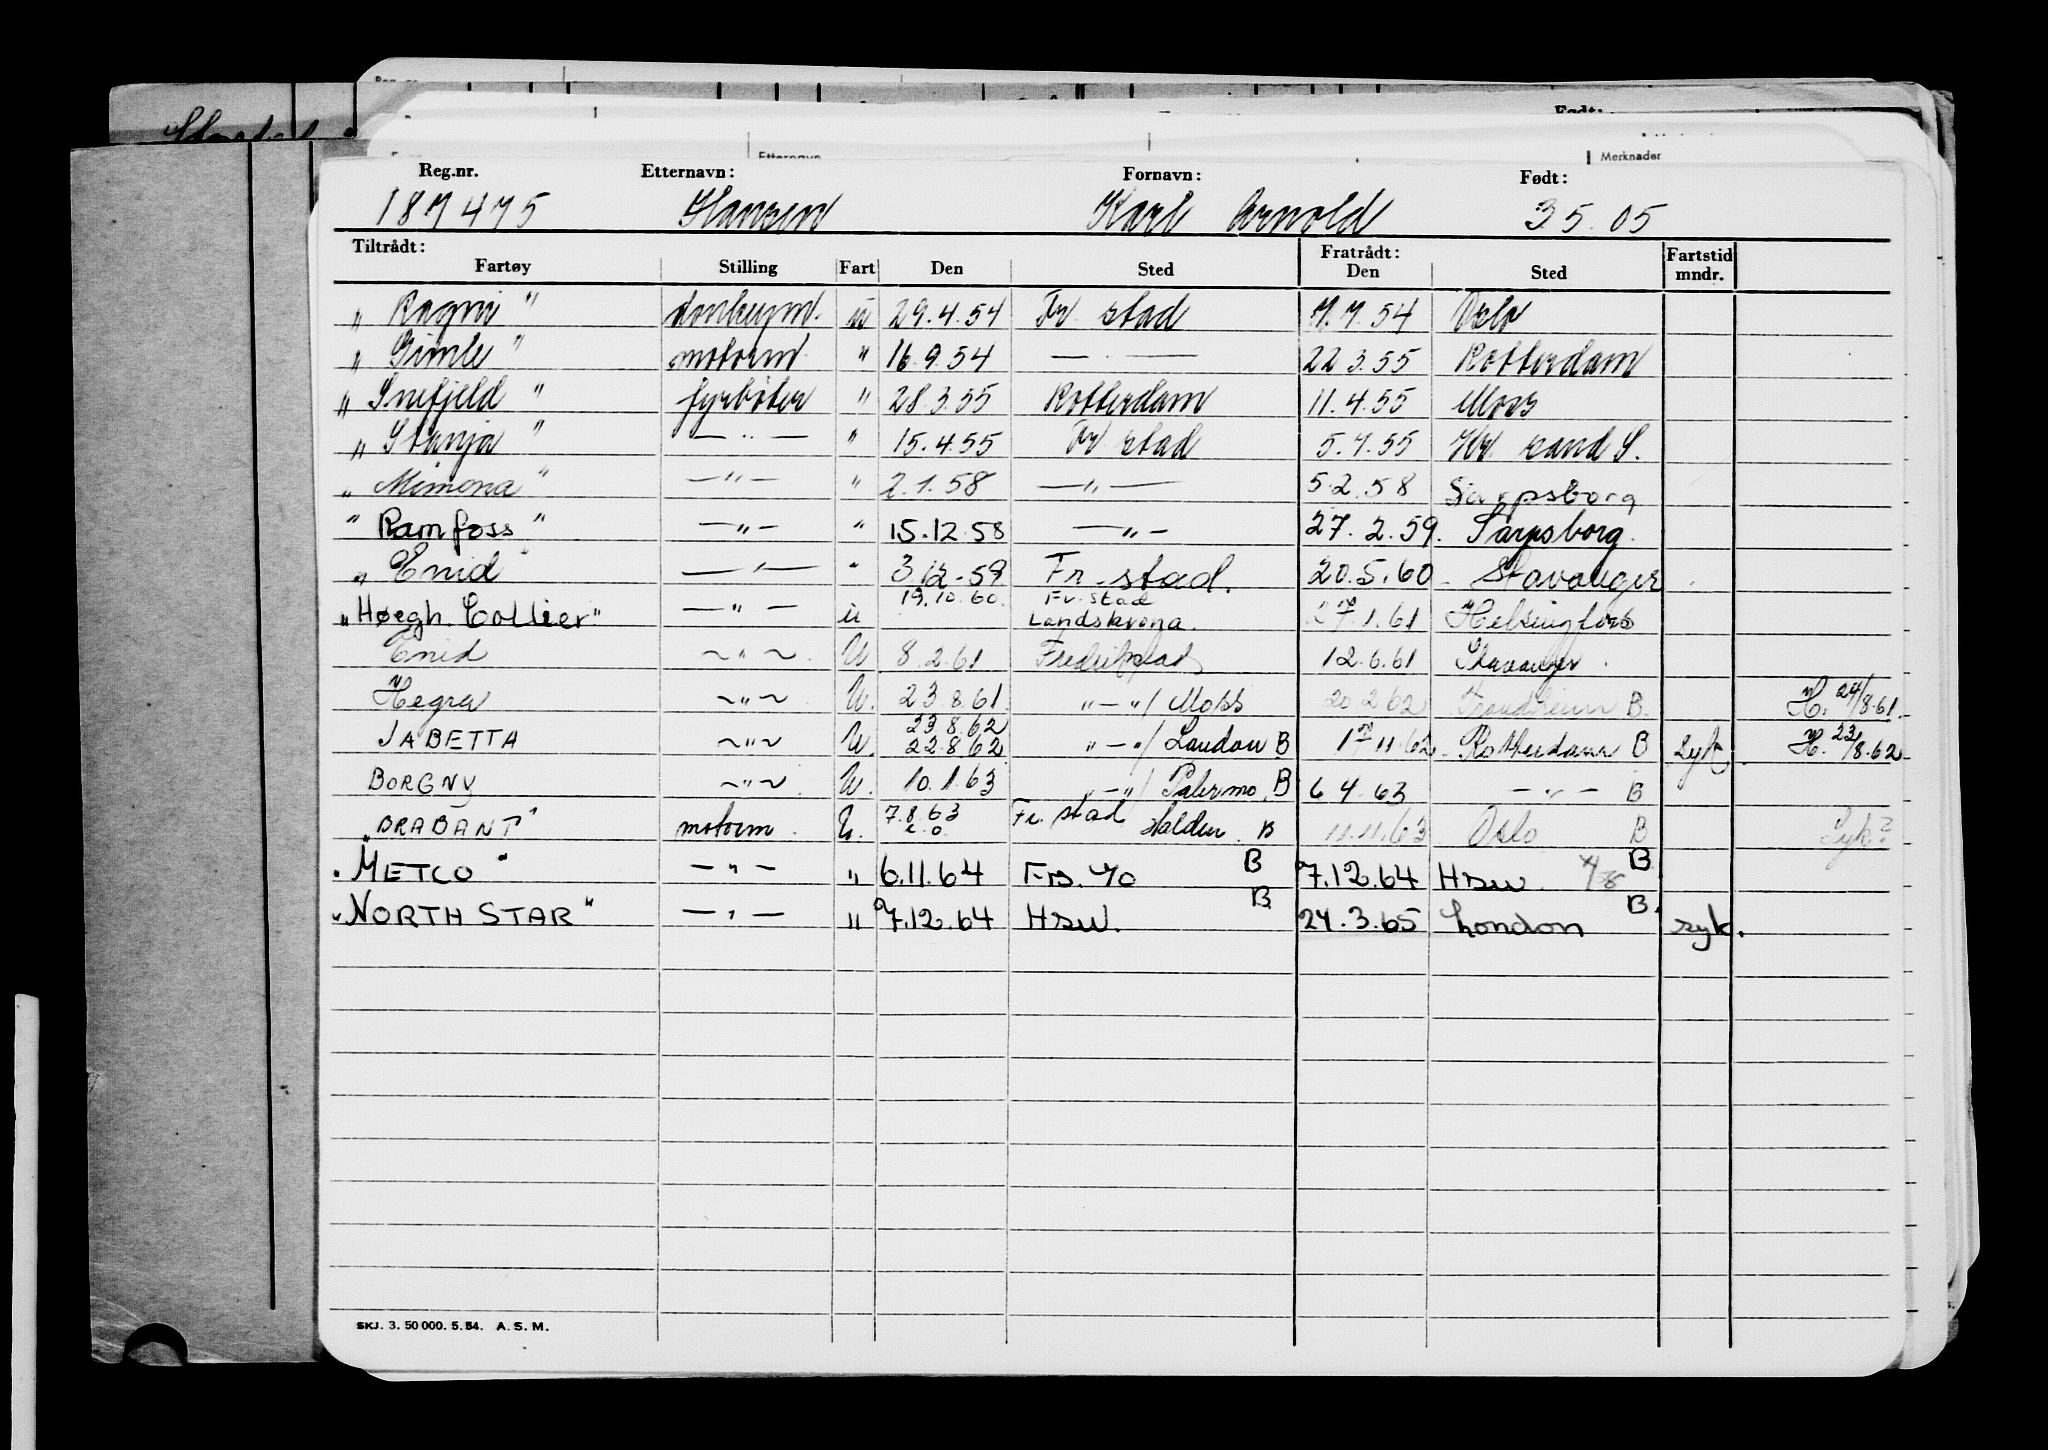 Født:
Etternavn
Merknader
Reg.nr. Etternavn: Fornavn: Født:
187475 Hansen Karl Arnold 3 5. 05
Tiltrådt: Fratrådt: Fartstid
Fartøy Stilling Fart Den Sted Den Sted mndr.
" Ragni " donkeym. u 29.4.54 Fr stad 7.7.54 Oslo
" Gimle " motorm. " 16.9.54 — " — 22.3.55 Rotterdam
" Snefjeld " fyrbøter " 28.3.55 Rotterdam 11.4.55 Moss
" Stanja " — " — " 15.4.55 Fr stad 5.7.55 Kr. sand S.
" Mimona " — " — " 2.1.58 — " — 5.2.58 Sarpsborg
" Ramfoss " — " — " 15.12.58 — " — 27.2.59. Sarpsborg.
" Enid " — " — " 3.12-59 Fr-stad. 20.5.60 Stavanger
19.10.60. Fr. stad
" Høegh Collier " — " — u Landskrona. 27.1.61 Helsingfors
Enid ~ " ~ U 8.2.61 Fredrikstad 12.6.61 Stavanger.
Hegra ~ " ~ U. 23.8.61 " - " / Moss 20.2.62 Trondheim B. H. 24/8.61.
23.8.62
JABETTA ~ " ~ U. 22.8.62 " - " / London B 17.11.62 Rotterdam B Syk. H. 23/8.62
BORGNY ~ " ~ U. 10.1.63 " - " / Palermo. B 6 4 63 — " — B
" BRABANT " motorm. U. 7.8.63 Fr. stad Halden. B 11.11.63 Oslo B Syk?
" METCO " — " — " 6.11.64 B 7.12.64 B
" NORTH STAR " — " — " 7.12.64 B 24.3.65 London B. syk.
SKJ. 3. 50 000. 5. 54. A. S. M.